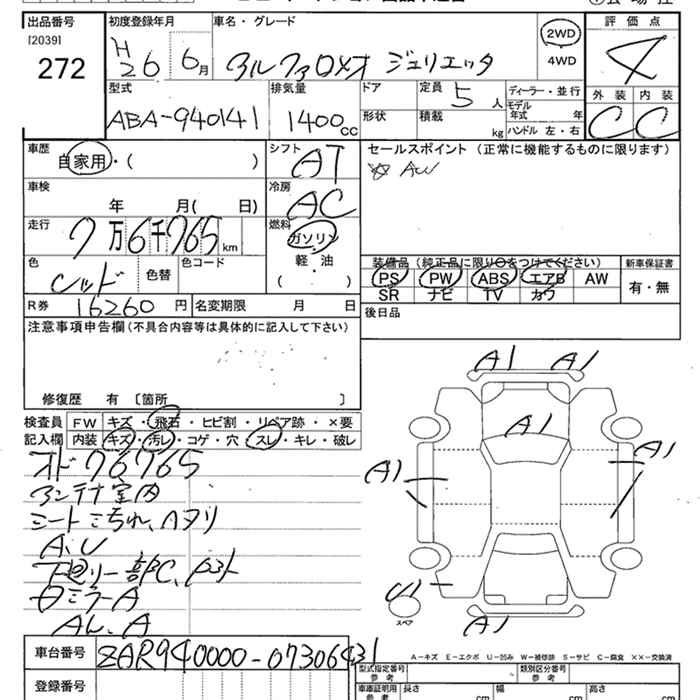 出品番号 初度登録年月 車名・グレード 評価点
[2039]
272
H26 6月 アルファロメオ ジュリエッタ 2WD 4WD 4
型式 排気量 ドア 定員 5人 ディーラー・並行 外装 内装
ABA-940141 1400cc 形状 積載 kg モデル年式 年 ハンドル 左・右 C C
車歴 自家用・( ) シフト AT セールスポイント (正常に機能するものに限ります)
AW
車検 年 月( 日) 冷房 AC
走行 7万6千765km 燃料 ガソリン 軽・油 ( )
色 レッド 色替 色コード
装備品 (純正品に限り○をつけてください) 新車保証書
PS PW ABS エアB AW 有・無
SR ナビ TV カワ
R券 16260円 名変期限 月 日 後日品
注意事項申告欄 (不具合内容等は具体的に記入して下さい)
修復歴 有 〔箇所 〕
検査員記入欄 FW キズ・飛石・ヒビ割・リペア跡・×要
内装 キズ・汚レ・コゲ・穴・スレ・キレ・破レ
オド76765
アンテナ室内
シートこちれ、ヘタリ
A、U
下廻リ一部C、
ミラーA
A
A1 A1
A1
A1 A1
U1
スペア
A1
A-キズ E-エクボ U-凹み W-補修跡 S-サビ C-腐食 ××-交換済
車台番号 ZAR940000-07306431
型式指定番号 参考 類別区分番号 参考
登録番号 車庫証明用 参考 長さ cm 幅 cm 高さ cm